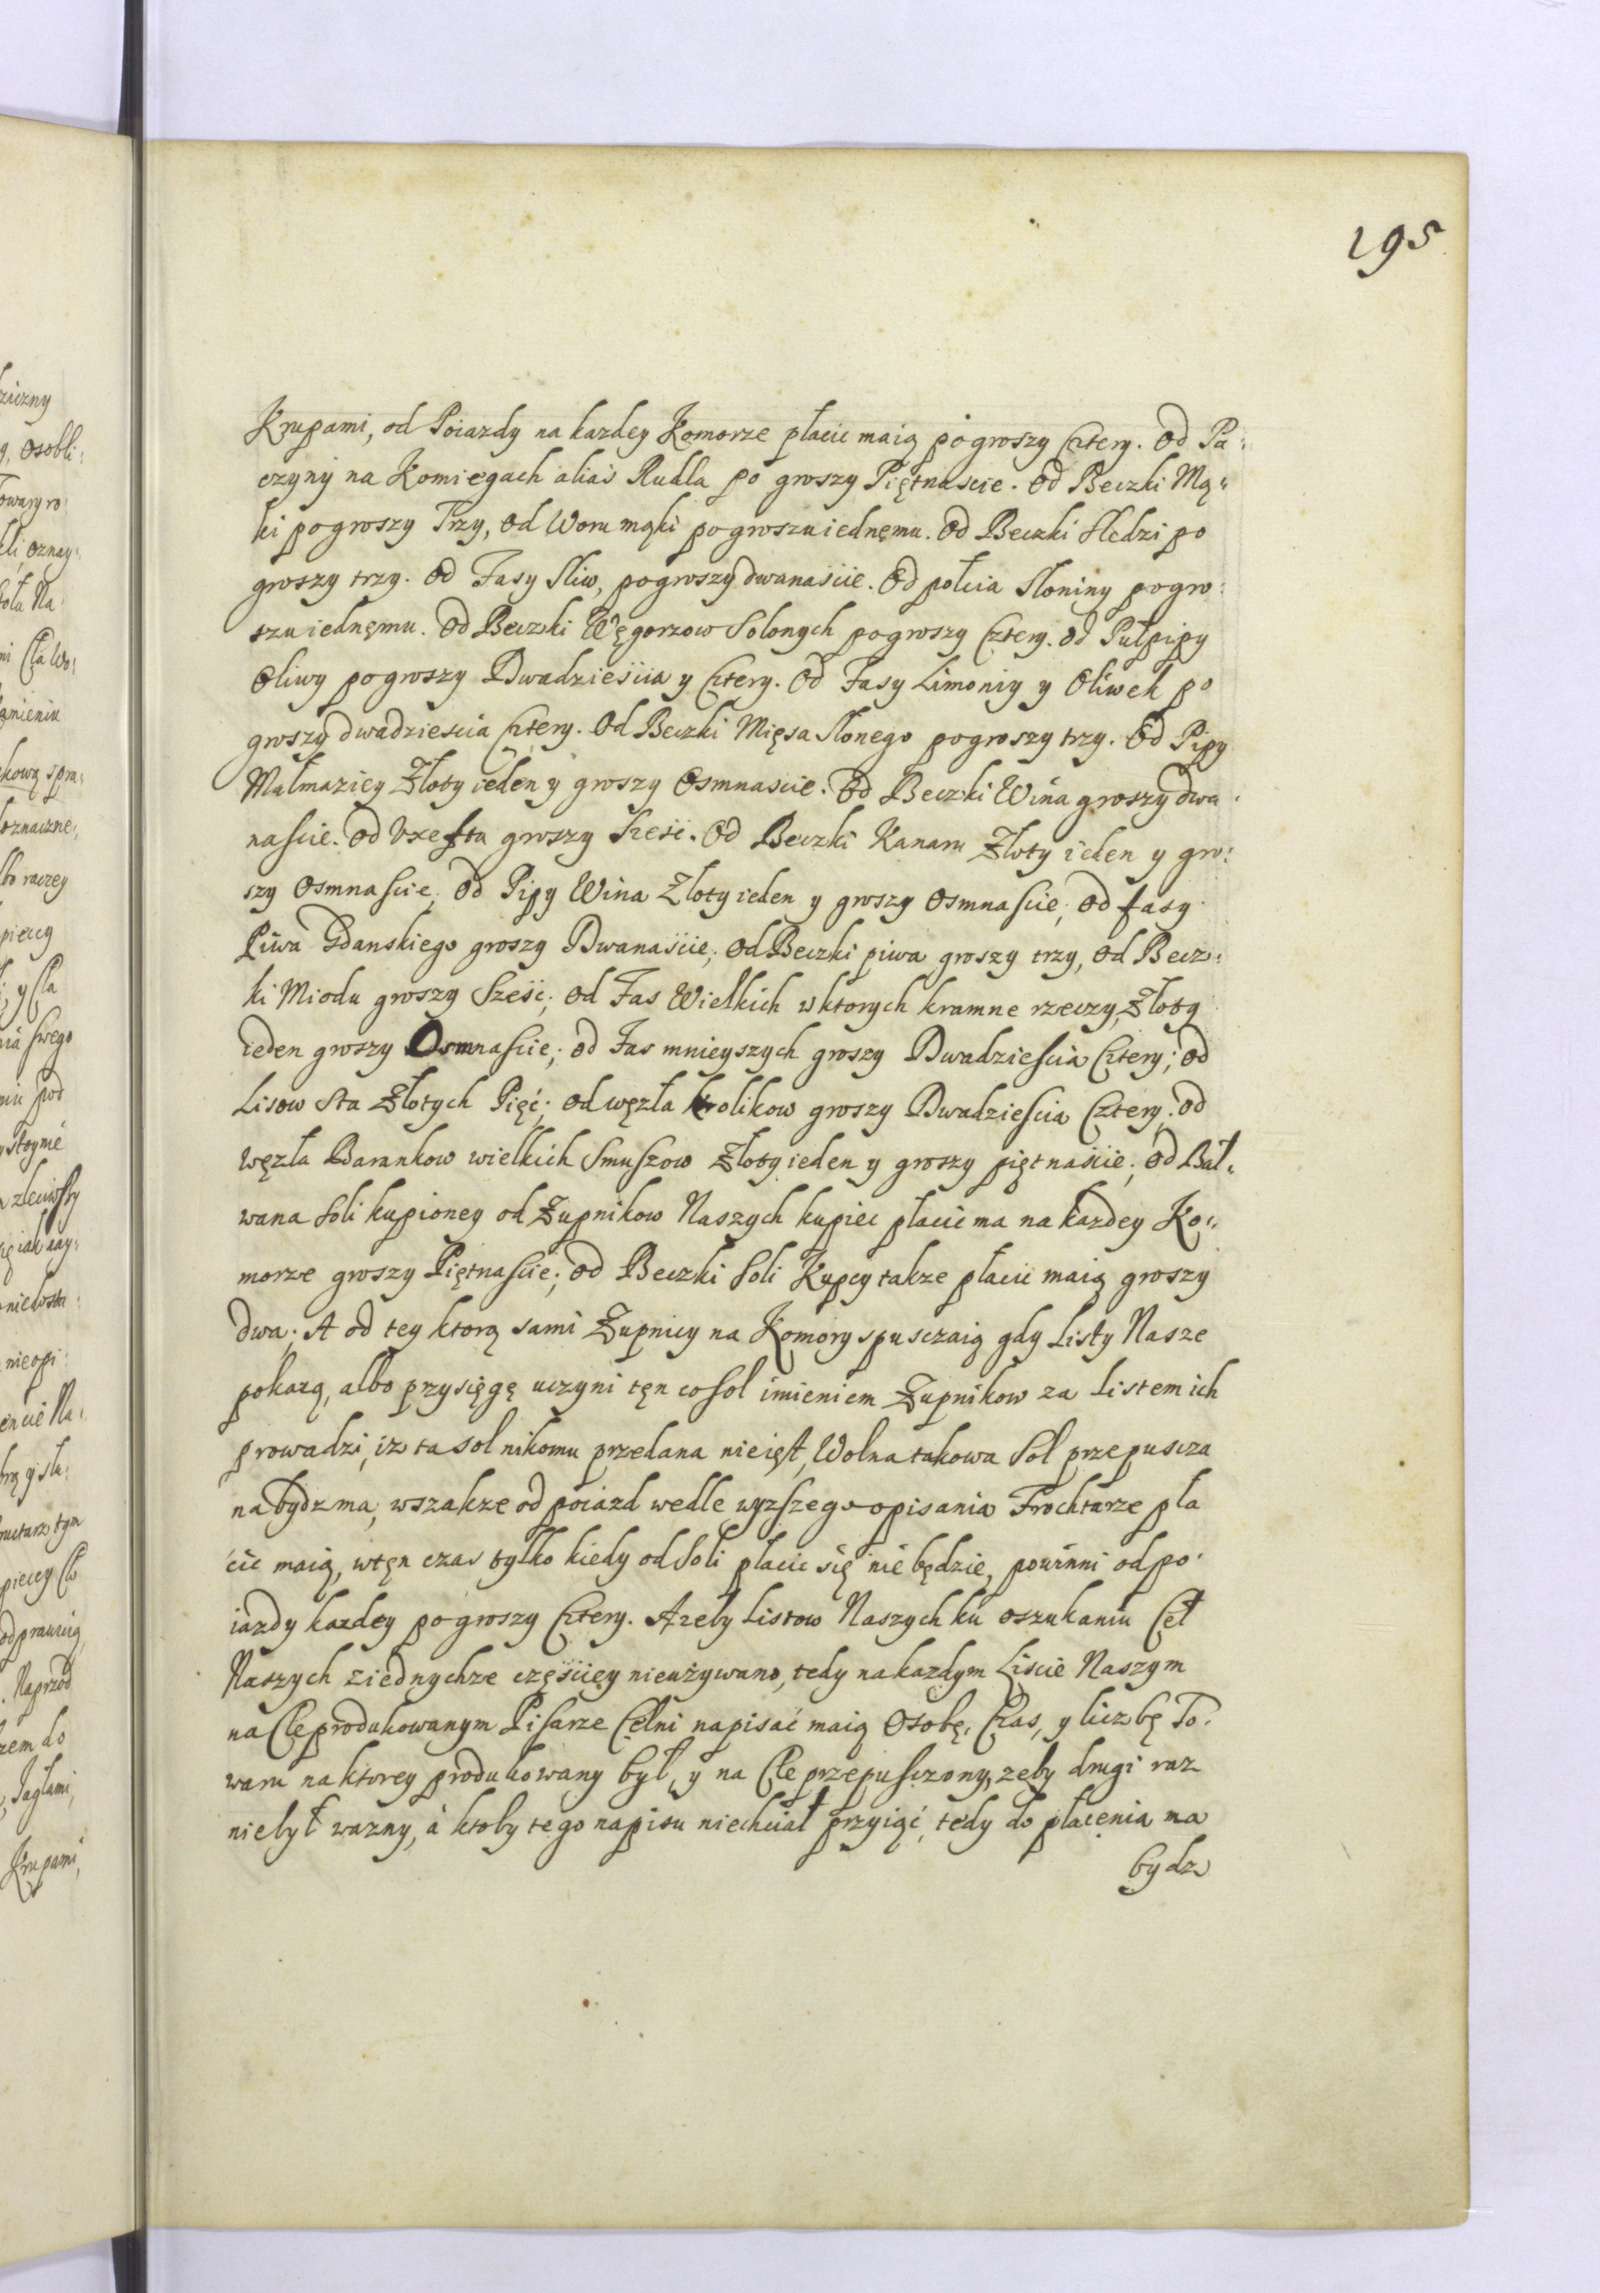 195
Krupami, od Poiazdy na kazdey Komorze płacic maią po groszy Cztery. Od Pa:
czyny na Komiegach alias Rudla po groszy Piętnascie. Od Beczki Mą:
ki po groszy Trzy, od Woru mąki po groszu iednęmu. Od Beczki Sledzi po
groszy trzy. Od Fasy Sliw, po groszy dwanaście. Od połcia Słoniny po gro:
szu iednęmu. Od Beczki Węgorzow Solonych po groszy Cztery. od Pułpipy
Oliwy po groszy Dwadzieścia y Cztery. Od Fasy Limoniy y Oliwek po
groszy dwadziescia Cztery. Od Beczki Mięsa Słonego po groszy trzy. Od Pipy
Małmaziey Złoty ieden y groszy Osmnascie. Od Beczki Wina groszy dwa:
nascie. od Uxefta groszy Sześć. Od Beczki Kanaru Złoty ieden y gro:
szy Osmnascie, Od Pipy Wina Złoty ieden y groszy Osmnascie; Od fasy
Piwa Gdanskiego groszy Dwanaście; Od Beczki piwa groszy trzy, Od Becz:
ki Miodu groszy Sześć; Od Fas Wielkich w ktorych kramne rzeczy, Złoty
ieden groszy Osmnascie; od Fas mnieyszych groszy Dwadziescia Cztery; Od
Lisow Sta Złotych Pięć; Od węzła krolikow groszy Dwadziescia Cztery. od
węzła Barankow wielkich Smuszow Złoty ieden y groszy piętnaście; Od Bał:
wana Soli kupioney od Zupnikow Naszych kupiec płacic ma na kazdey Ko:
morze groszy Piętnascie; od Beczki Soli Kupcy takze płacic maią groszy
dwa; A od tey ktorą sami Zupnicy na Komory spusczaią gdy Listy Nasze
pokazą, albo przysięgę uczyni tęn co Sol imieniem Zupnikow za Listem ich
prowadzi, iz ta sol nikomu przedana nieięst, Wolna takowa Sol przepuscza
na bydz ma, wszakze od poiazd wedle wyzszego opisania Frochtarze pła
cic maią, wtęn czas tylko kiedy od Soli płacic się nie będzie, powinni od po:
iazdy kazdey po groszy Cztery. A zeby Listow Naszych ku oszukaniu Ceł
Naszych ziednychze częściey nieużywano, tedy na kazdym Liscie Naszym
na Cle produkowanym Pisarze Celni napisać maią Osobę, Czas, y liczbę To:
waru na ktorey produkowany był, y na Cle przepuszczony, zeby drugi raz
niebył wazny, à ktoby tego napisu niechciał przyiąć, tedy do płacenia ma
bydz